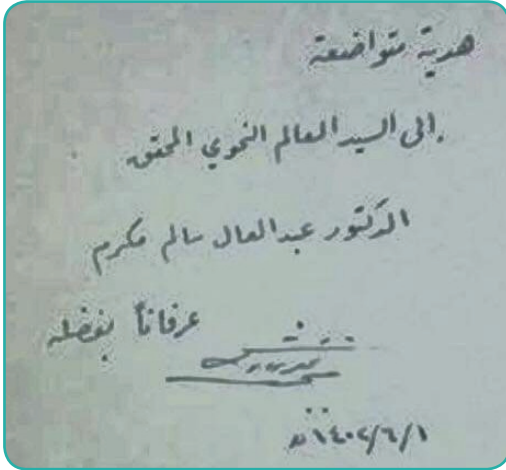 هدية متواضعة
إلى السيد العالم النحوي المحقق
الدكتور عبدالعال سالم مكرم
عرفاناً بفضله
١٤٠٢/٦/١ هـ